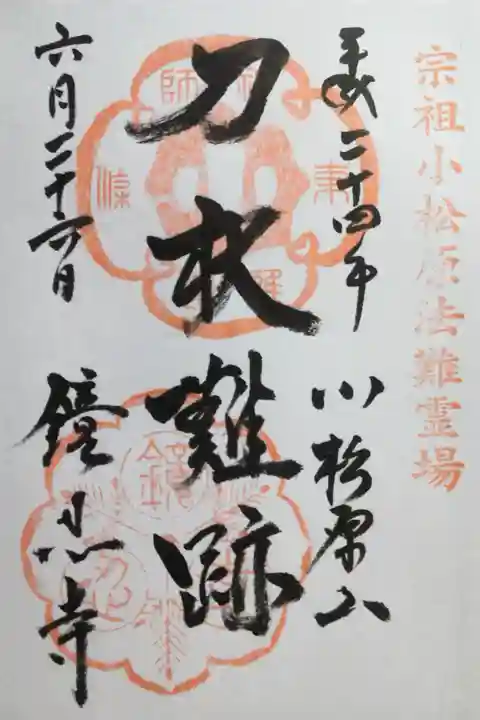 宗祖小松原法難霊場
平成二十四年
小松原山
刀杖難跡
六月二十六日
鏡忍寺